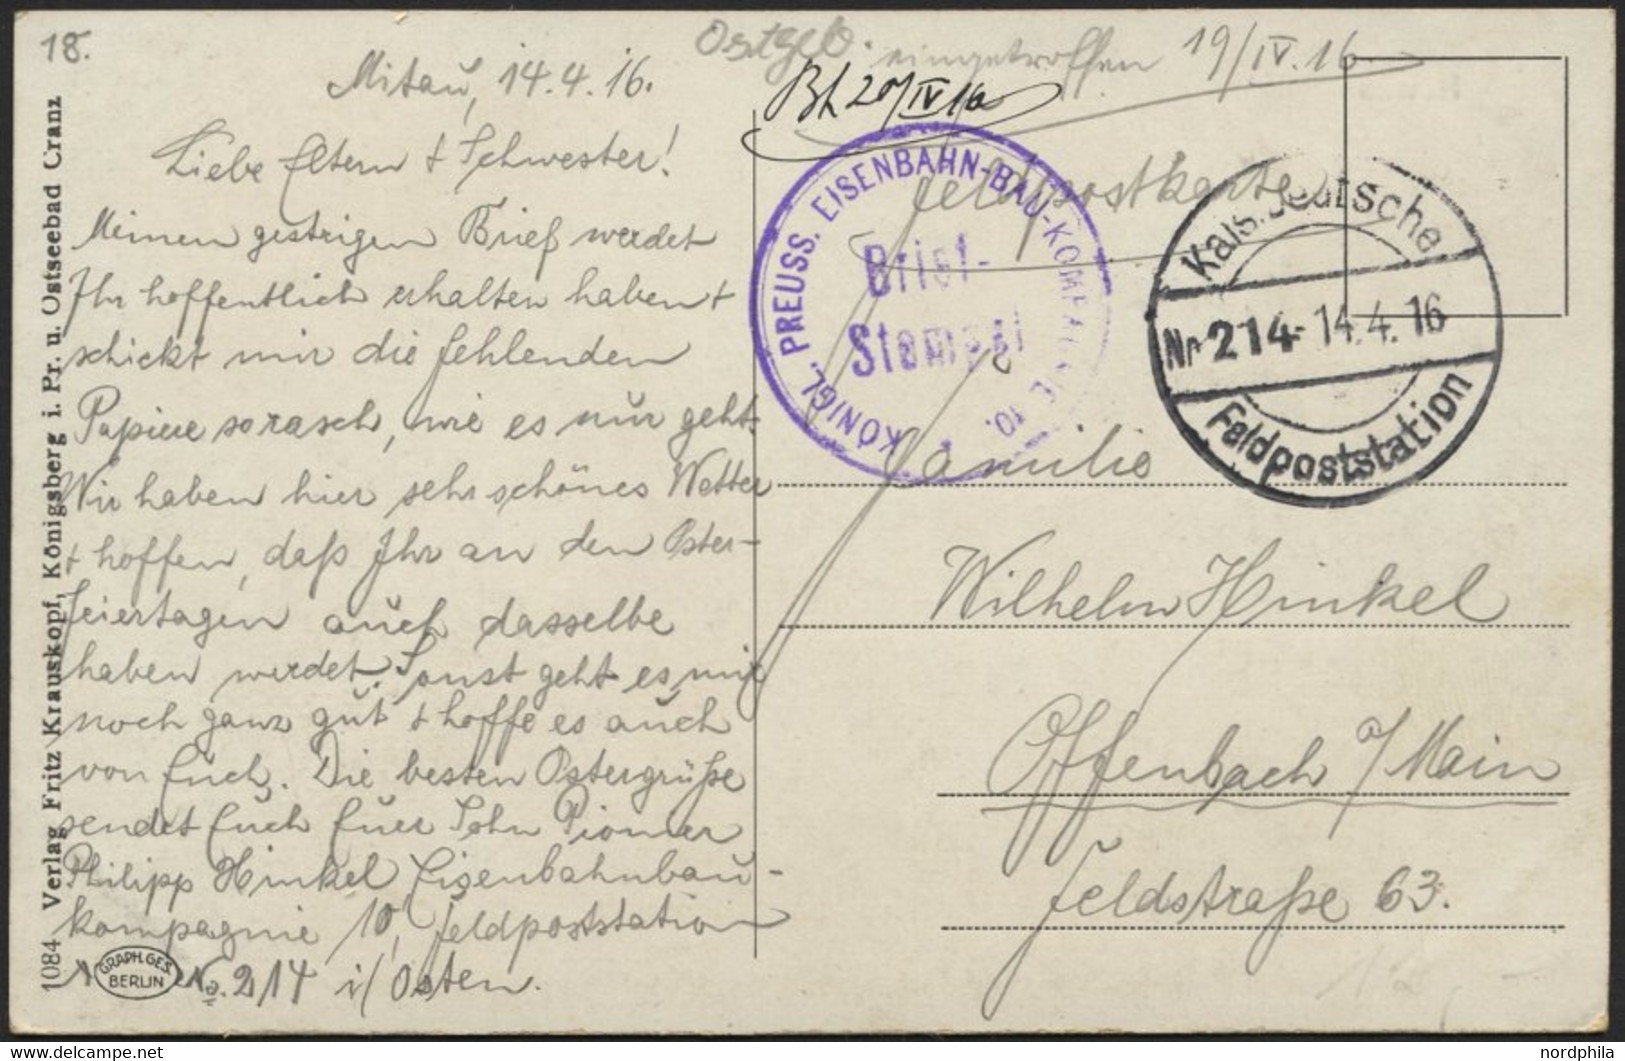 18.
Mitau, 14.4.16.
Liebe Eltern + Schwester!
Meinen gestrigen Brief werdet
Ihr hoffentlich erhalten haben +
schickt mir die fehlenden
Papiere so rasch, wie es nur geht.
Wir haben hier sehr schönes Wetter
+ hoffen, daß Ihr an den Oster-
feiertagen auch dasselbe
haben werdet. Sonst geht es mir
noch ganz gut + hoffe es auch
von Euch. Die besten Ostergrüße
sendet Euch Euer Sohn Pionier
Philipp Hinkel Eisenbahnbau-
kompagnie 10, Feldpoststation
No. 214 i/Osten.
1084 Verlag Fritz Krauskopf, Königsberg i. Pr. u. Ostseebad Cranz
GRAPH. GES.
BERLIN
Ostgeb. eingetroffen 19/IV.16.
20/IV 16
Feldpostkarte
KÖNIGL. PREUSS. EISENBAHN-BAU-KOMPAGNIE 10.
Brief-
Stempel
Kais. Deutsche
Nr 214 14.4.16
Feldpoststation
Familie
Wilhelm Hinkel
Offenbach a/Main
Feldstraße 63.
nordphila